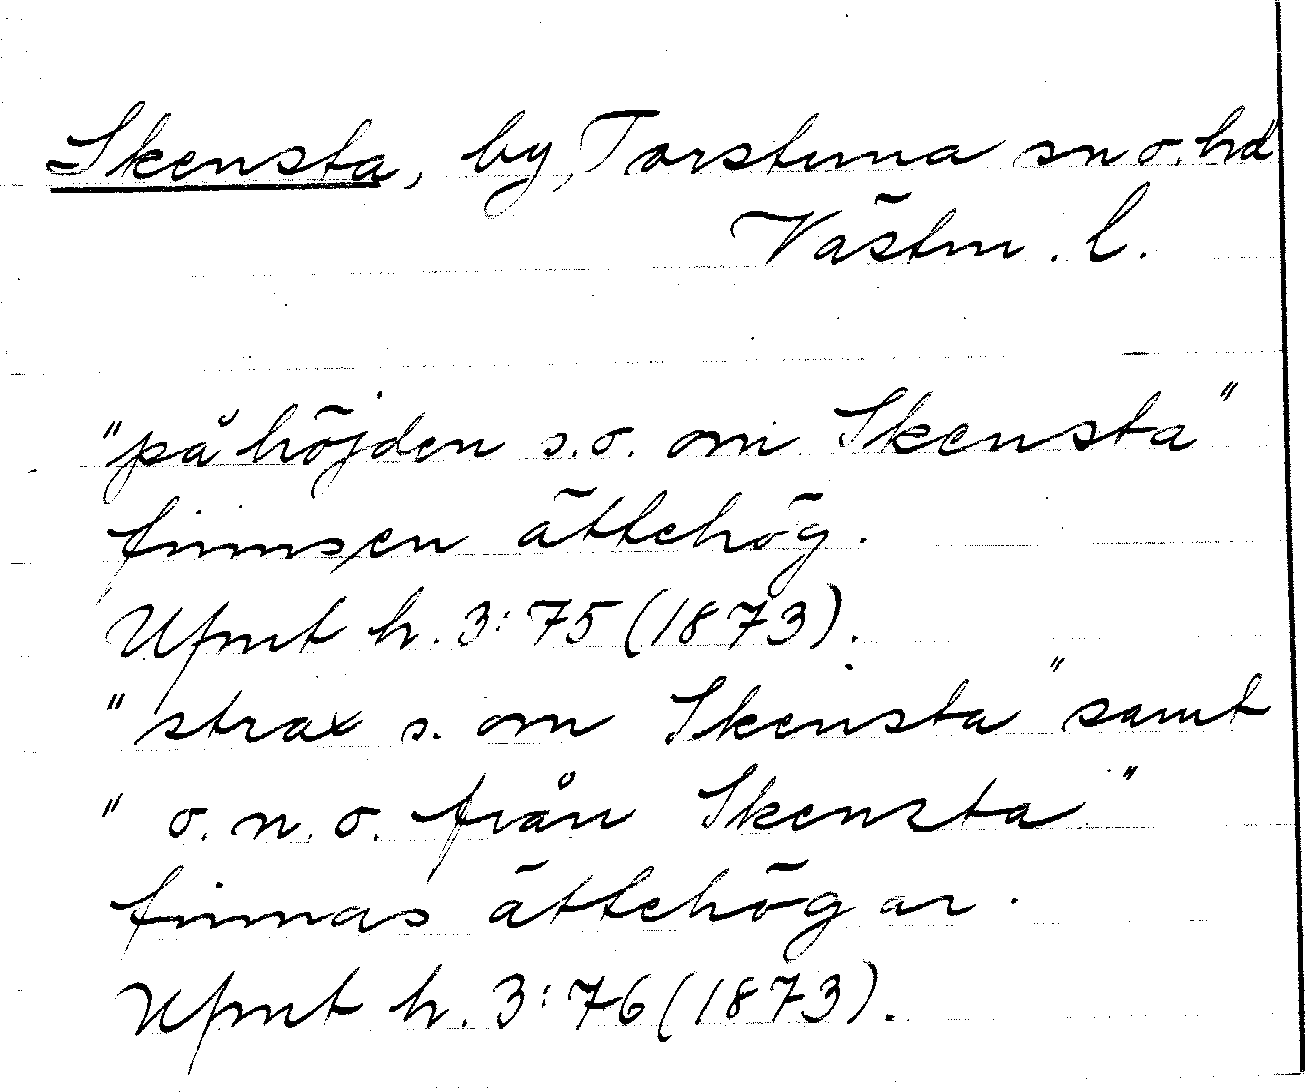 Skensta, by, Torstuna sn o. hd
Västm. l.
"på höjden s.o. om Skensta"
finnes en ättehög.
Ufmt h. 3:75 (1873).
"strax s. om Skensta" samt
"o.n.o. från Skensta"
finnas ättehögar.
Ufmt h. 3:76 (1873).